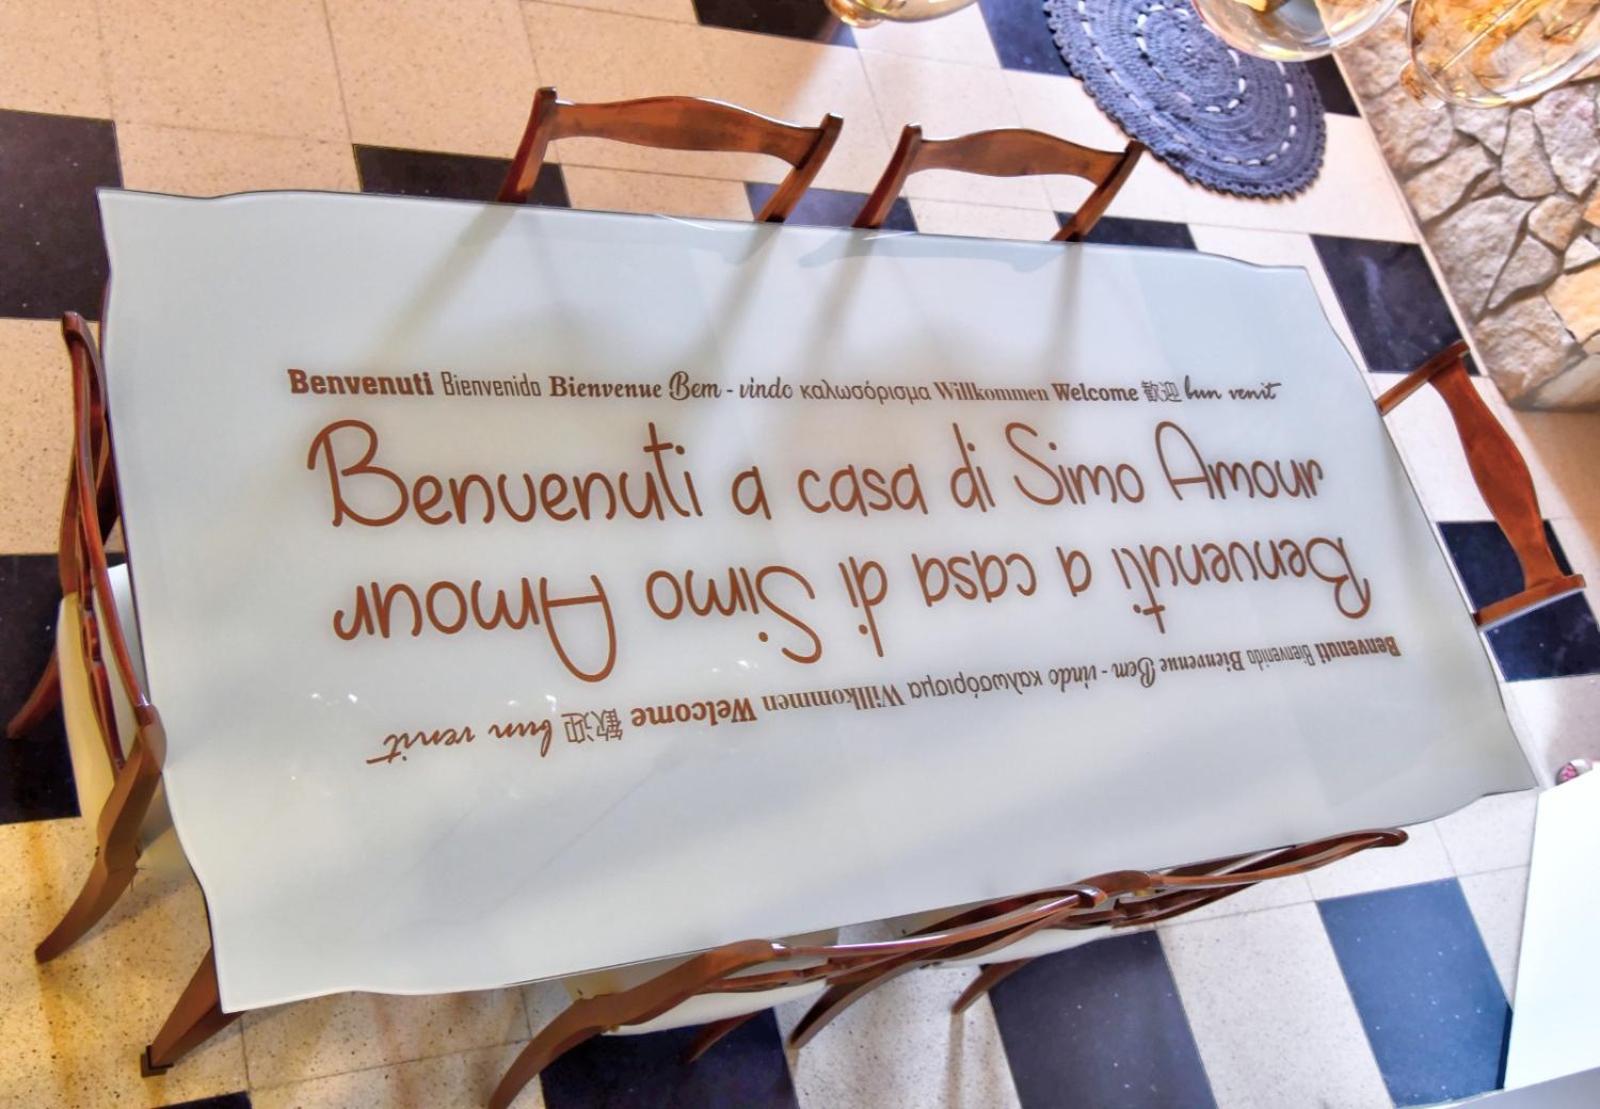 Benvenuti Bienvenido Bienvenue Bem - vindo καλωσόρισμα Willkommen Welcome 歡迎 bun venit
Benvenuti a casa di Simo Amour
Benvenuti a casa di Simo Amour
Benvenuti Bienvenido Bienvenue Bem - vindo καλωσόρισμα Willkommen Welcome 歡迎 bun venit